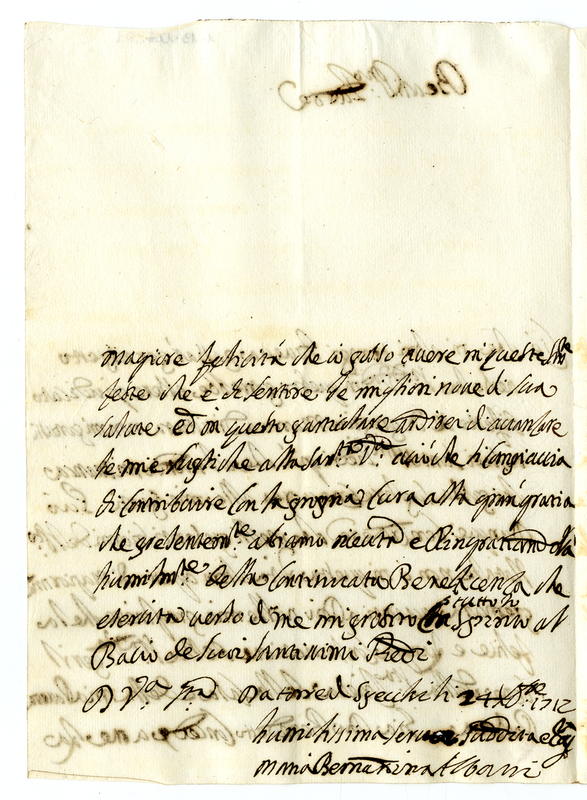 magiore felicità che io posso avere in queste Sme
feste che è di sentire le migliori nove di sua
salute ed in questo particolare ardirei d avanzare
le mie supliche alla Santà Va acciò che si Compiaccia
di contribuire Con la propria Cura alla gran gratia
che presentemte abiamo riceuta e Ringratiandola
humilmte della Continuata Beneficenza che
esercita verso di me mi prostro con tutto lo Spirito al
Bacio de Suoi Santissimi Piedi
D Va Stà Da Torre di Specchi li 24 Xbre 1712
humilissima serva suddita e
Maria Bernardina Albani